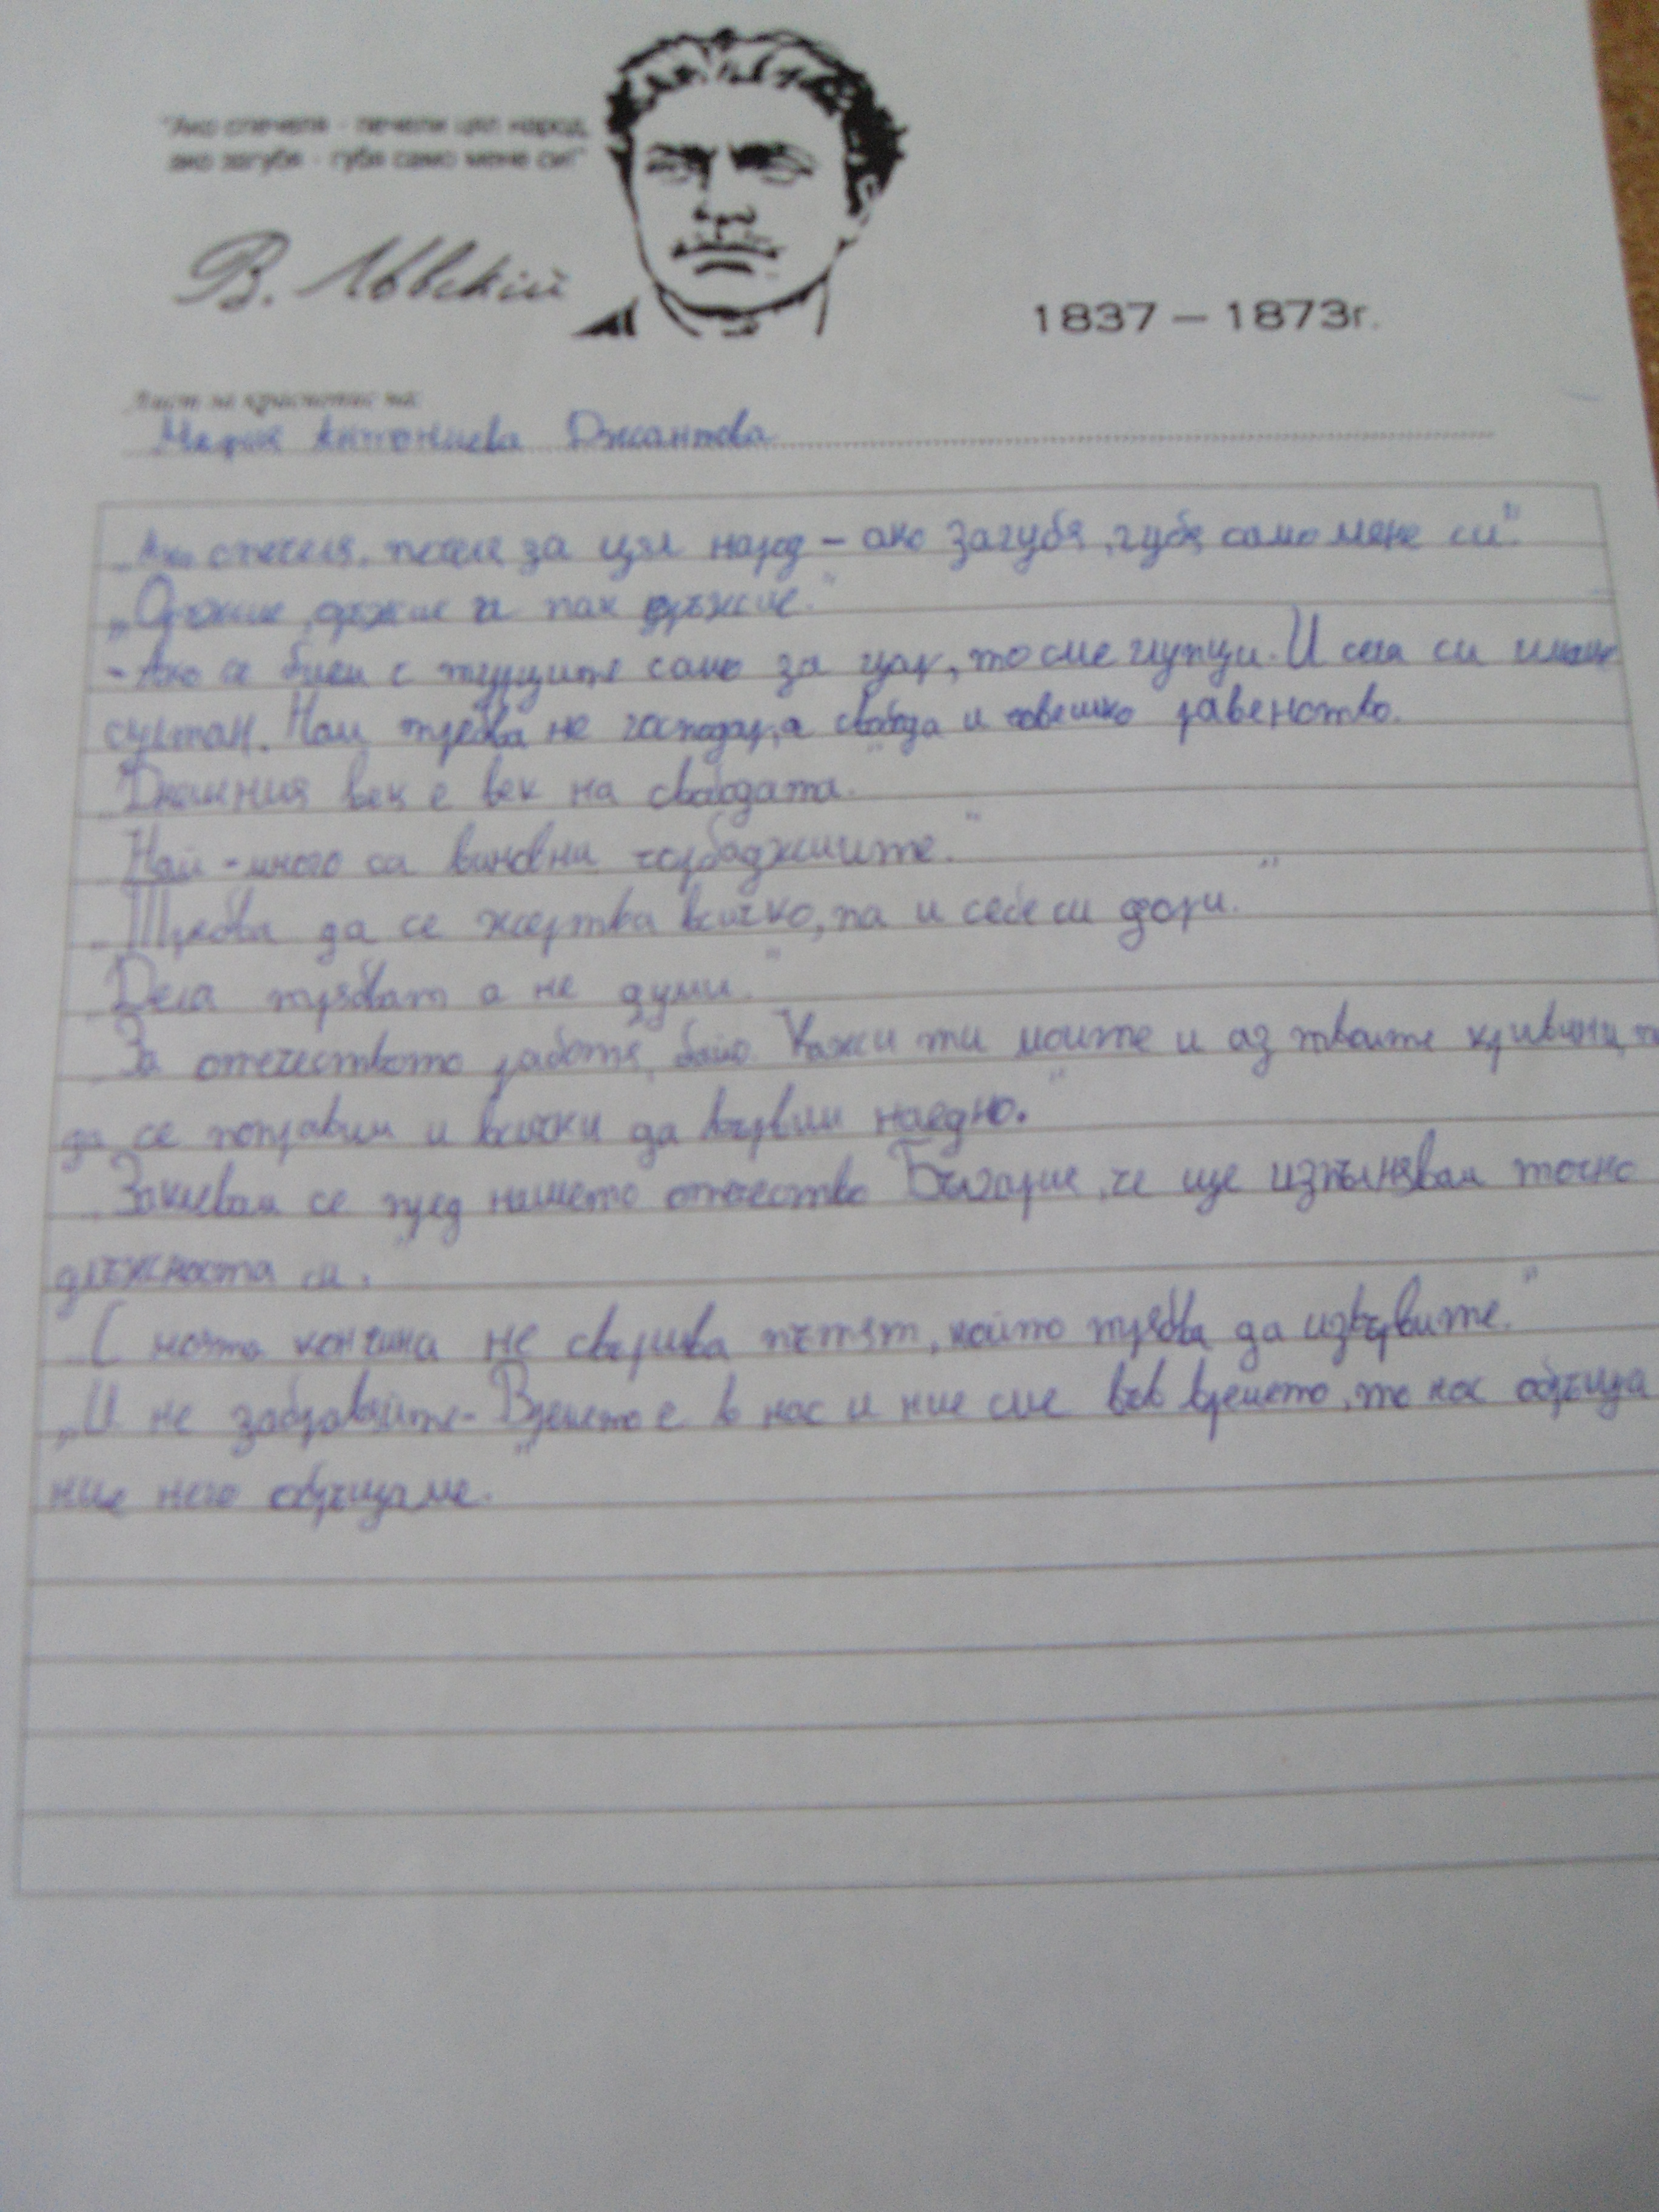 "Ако спечеля - печели цял народ,
ако загубя - губя само мене си!"
В. Лѣвскій
1837 – 1873г.
Лист за краснопис на:
Мария Антониева Джантова
„Ако спечеля, печеля за цял народ – ако загубя, губя само мене си".
„Оръжие, оръжие и пак оръжие."
- Ако се бием с турците само за цар, то сме глупци. И сега си имаме
султан. Нам трябва не господар, а свобода и човешко равенство.
„Днешния век е век на свободата."
„Най-много са виновни чорбаджиите."
„Трябва да се жертва всичко, па и себе си дори."
„Дела трябват а не думи."
„За отечеството работя, байо. Кажи ти моите и аз твоите кривини, па
да се поправим и всички да вървим наедно."
„Заклевам се пред нашето отечество България, че ще изпълнявам точно
длъжността си."
„С моята кончина не свършва пътят, който трябва да извървите."
„И не забравяйте- Времето е в нас и ние сме във времето, то нас обръща
ние него обръщаме."